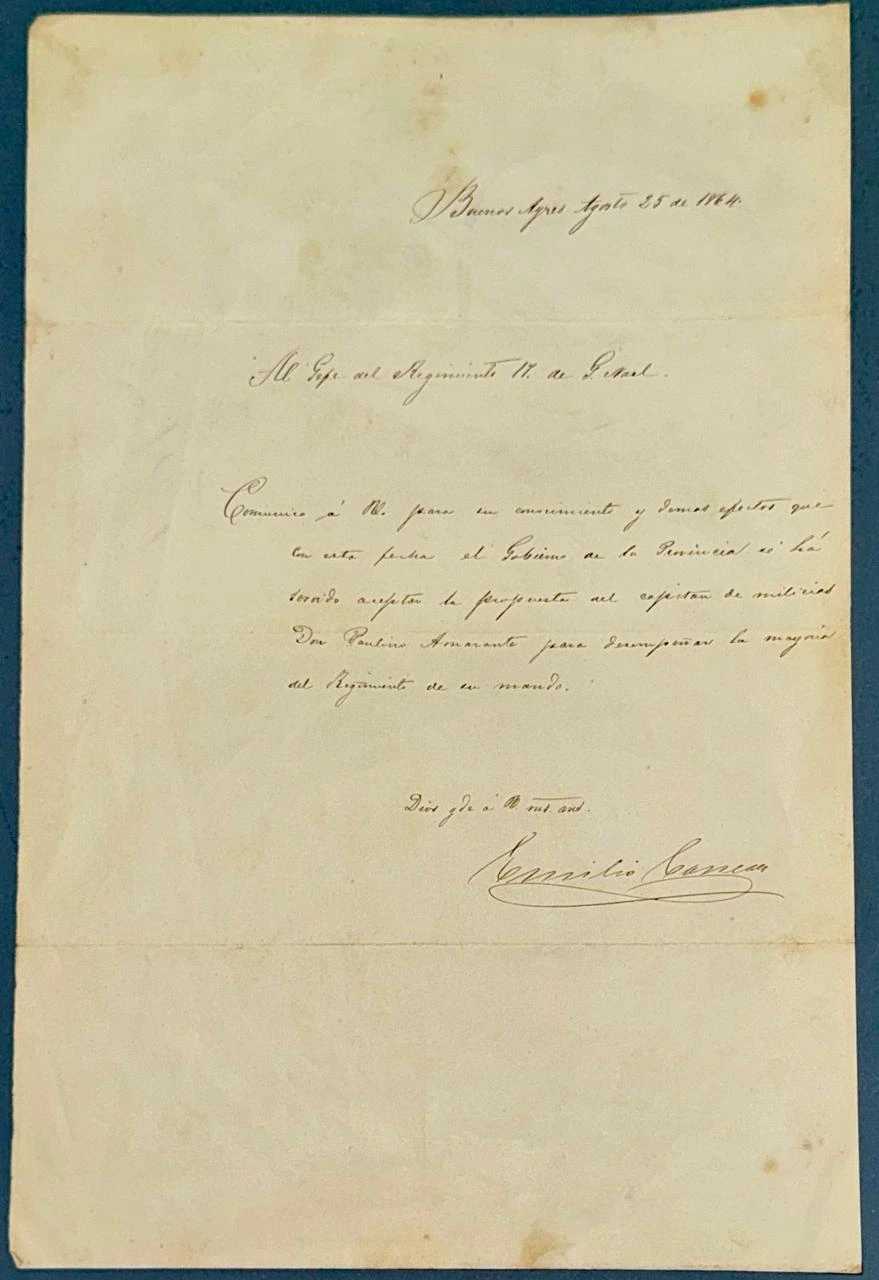 Buenos Ayres Agosto 25 de 1864.
Al Gefe del Regimiento 17. de G. Nacl.
Comunico á V. para su conocimiento y demas efectos que
con esta fecha el Gobierno de la Provincia se há
servido aceptar la propuesta del capitan de milicias
Don Paulino Amarante para desempeñar la mayoria
del Regimiento de su mando.
Dios gde á V. ms. ans.
Emilio